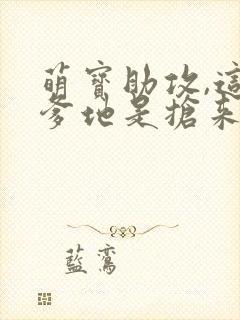 萌寶助攻,這
爹地是搶來
藍鸞